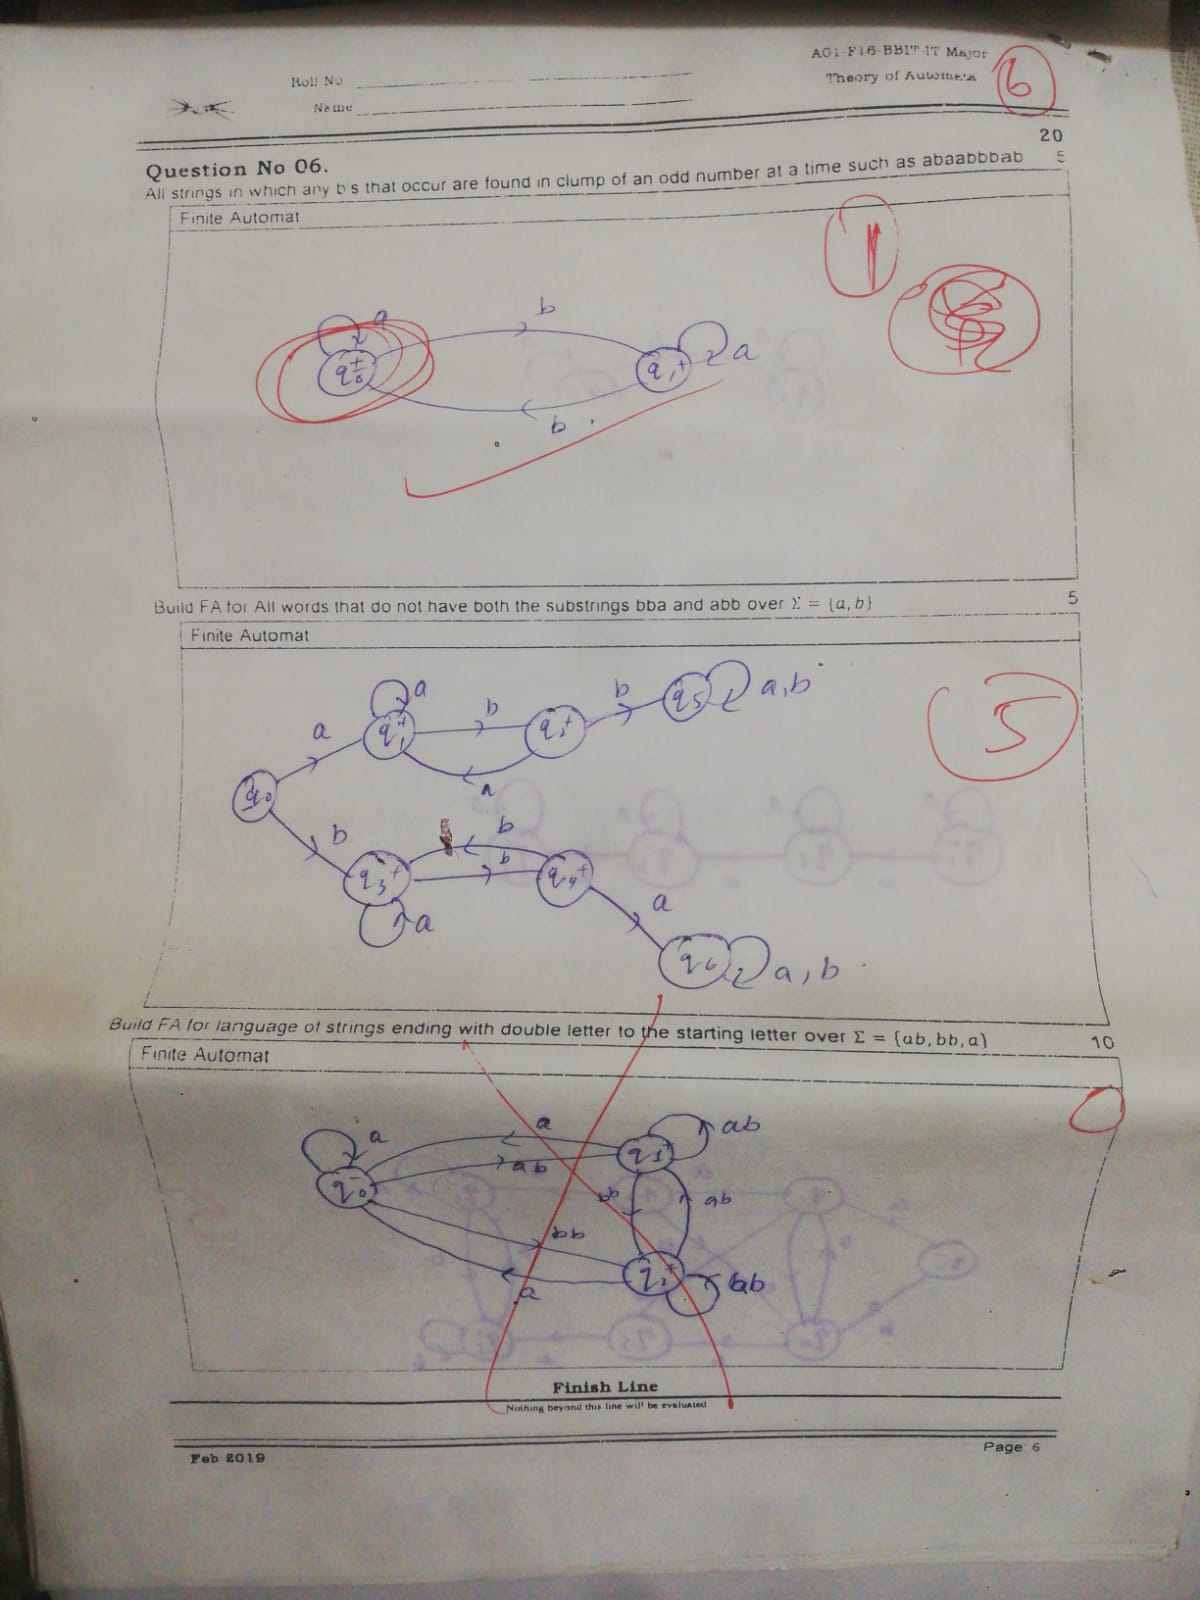 AO1-F16-BBIT-IT Major
Roll No
Theory of Automata
6
Name
20
Question No 06.
All strings in which any b s that occur are found in clump of an odd number at a time such as abaabbbab 5
Finite Automat
1
a
b
q0±
q1+
a
b
Build FA for All words that do not have both the substrings bba and abb over Σ = {a, b} 5
Finite Automat
a
b
b
q5
a,b
5
a
q1+
q2+
a
q0
b
b
b
q3+
q4+
a
a
q6
a, b
Build FA for language of strings ending with double letter to the starting letter over Σ = {ab, bb, a} 10
Finite Automat
0
a
a
ab
q1+
ab
q0-
bb
ab
bb
q2+
a
bb
Finish Line
Nothing beyond this line will be evaluated
Feb 2019
Page 6